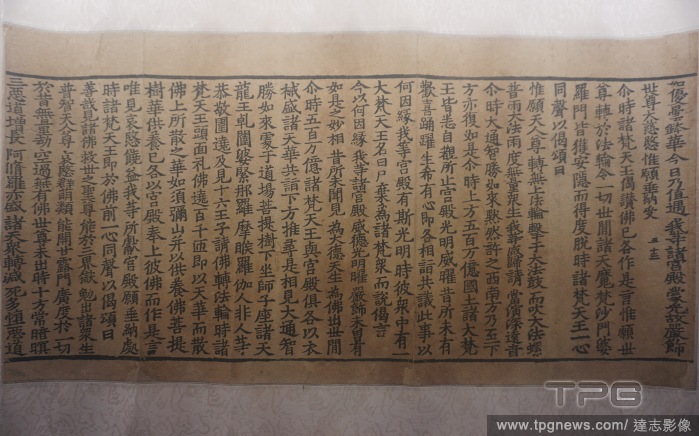 如優曇鉢華今日乃值遇 我等諸宮殿蒙光故嚴飾
世尊大慈愍惟願垂納受
尒時諸梵天王偈讚佛已各作是言惟願世
尊轉於法輪令一切世間諸天魔梵沙門婆
羅門皆獲安隱而得度脫時諸梵天王一心
同聲以偈頌曰
惟願天人尊轉無上法輪擊于大法鼓而吹大法螺
普雨大法雨度無量眾生我等咸歸請當演深遠音
尒時大通智勝如來默然許之西南方乃至下
方亦復如是尒時上方五百万億國土諸大梵
王皆悉自覩所止宮殿光明威曜昔所未有
歡喜踊躍生希有心即各相詣共議此事以
何因緣我等宮殿有斯光明時彼眾中有一
大梵天王名曰尸棄為諸梵眾而說偈言
今以何因緣我等諸宮殿威德光明曜嚴飾未曾有
如是之妙相昔所未聞見為大德天生為佛出世間
尒時五百万億諸梵天王與宮殿俱各以衣
祴盛諸天華共詣下方推尋是相見大通智
勝如來處于道場菩提樹下坐師子座諸天
龍王乹闥婆緊那羅摩睺羅伽人非人等
恭敬圍遶及見十六王子請佛轉法輪時諸
梵天王頭面礼佛遶百千匝即以天華而散
佛上所散之華如須彌山并以供養佛菩提
樹華供養已各以宮殿奉上彼佛而作是言
唯見哀愍饒益我等所獻宮殿願垂納處
時諸梵天王即於佛前一心同聲以偈頌曰
善哉見諸佛救世之聖尊能於三界獄勉出諸眾生
普智天人尊哀愍群萌類能開甘露門廣度於一切
於昔無量劫空過無有佛世尊未出時十方常暗瞑
三惡道增長阿修羅亦盛諸天眾轉減死多墮惡道
TPG
www.tpgnews.com / 達志影像